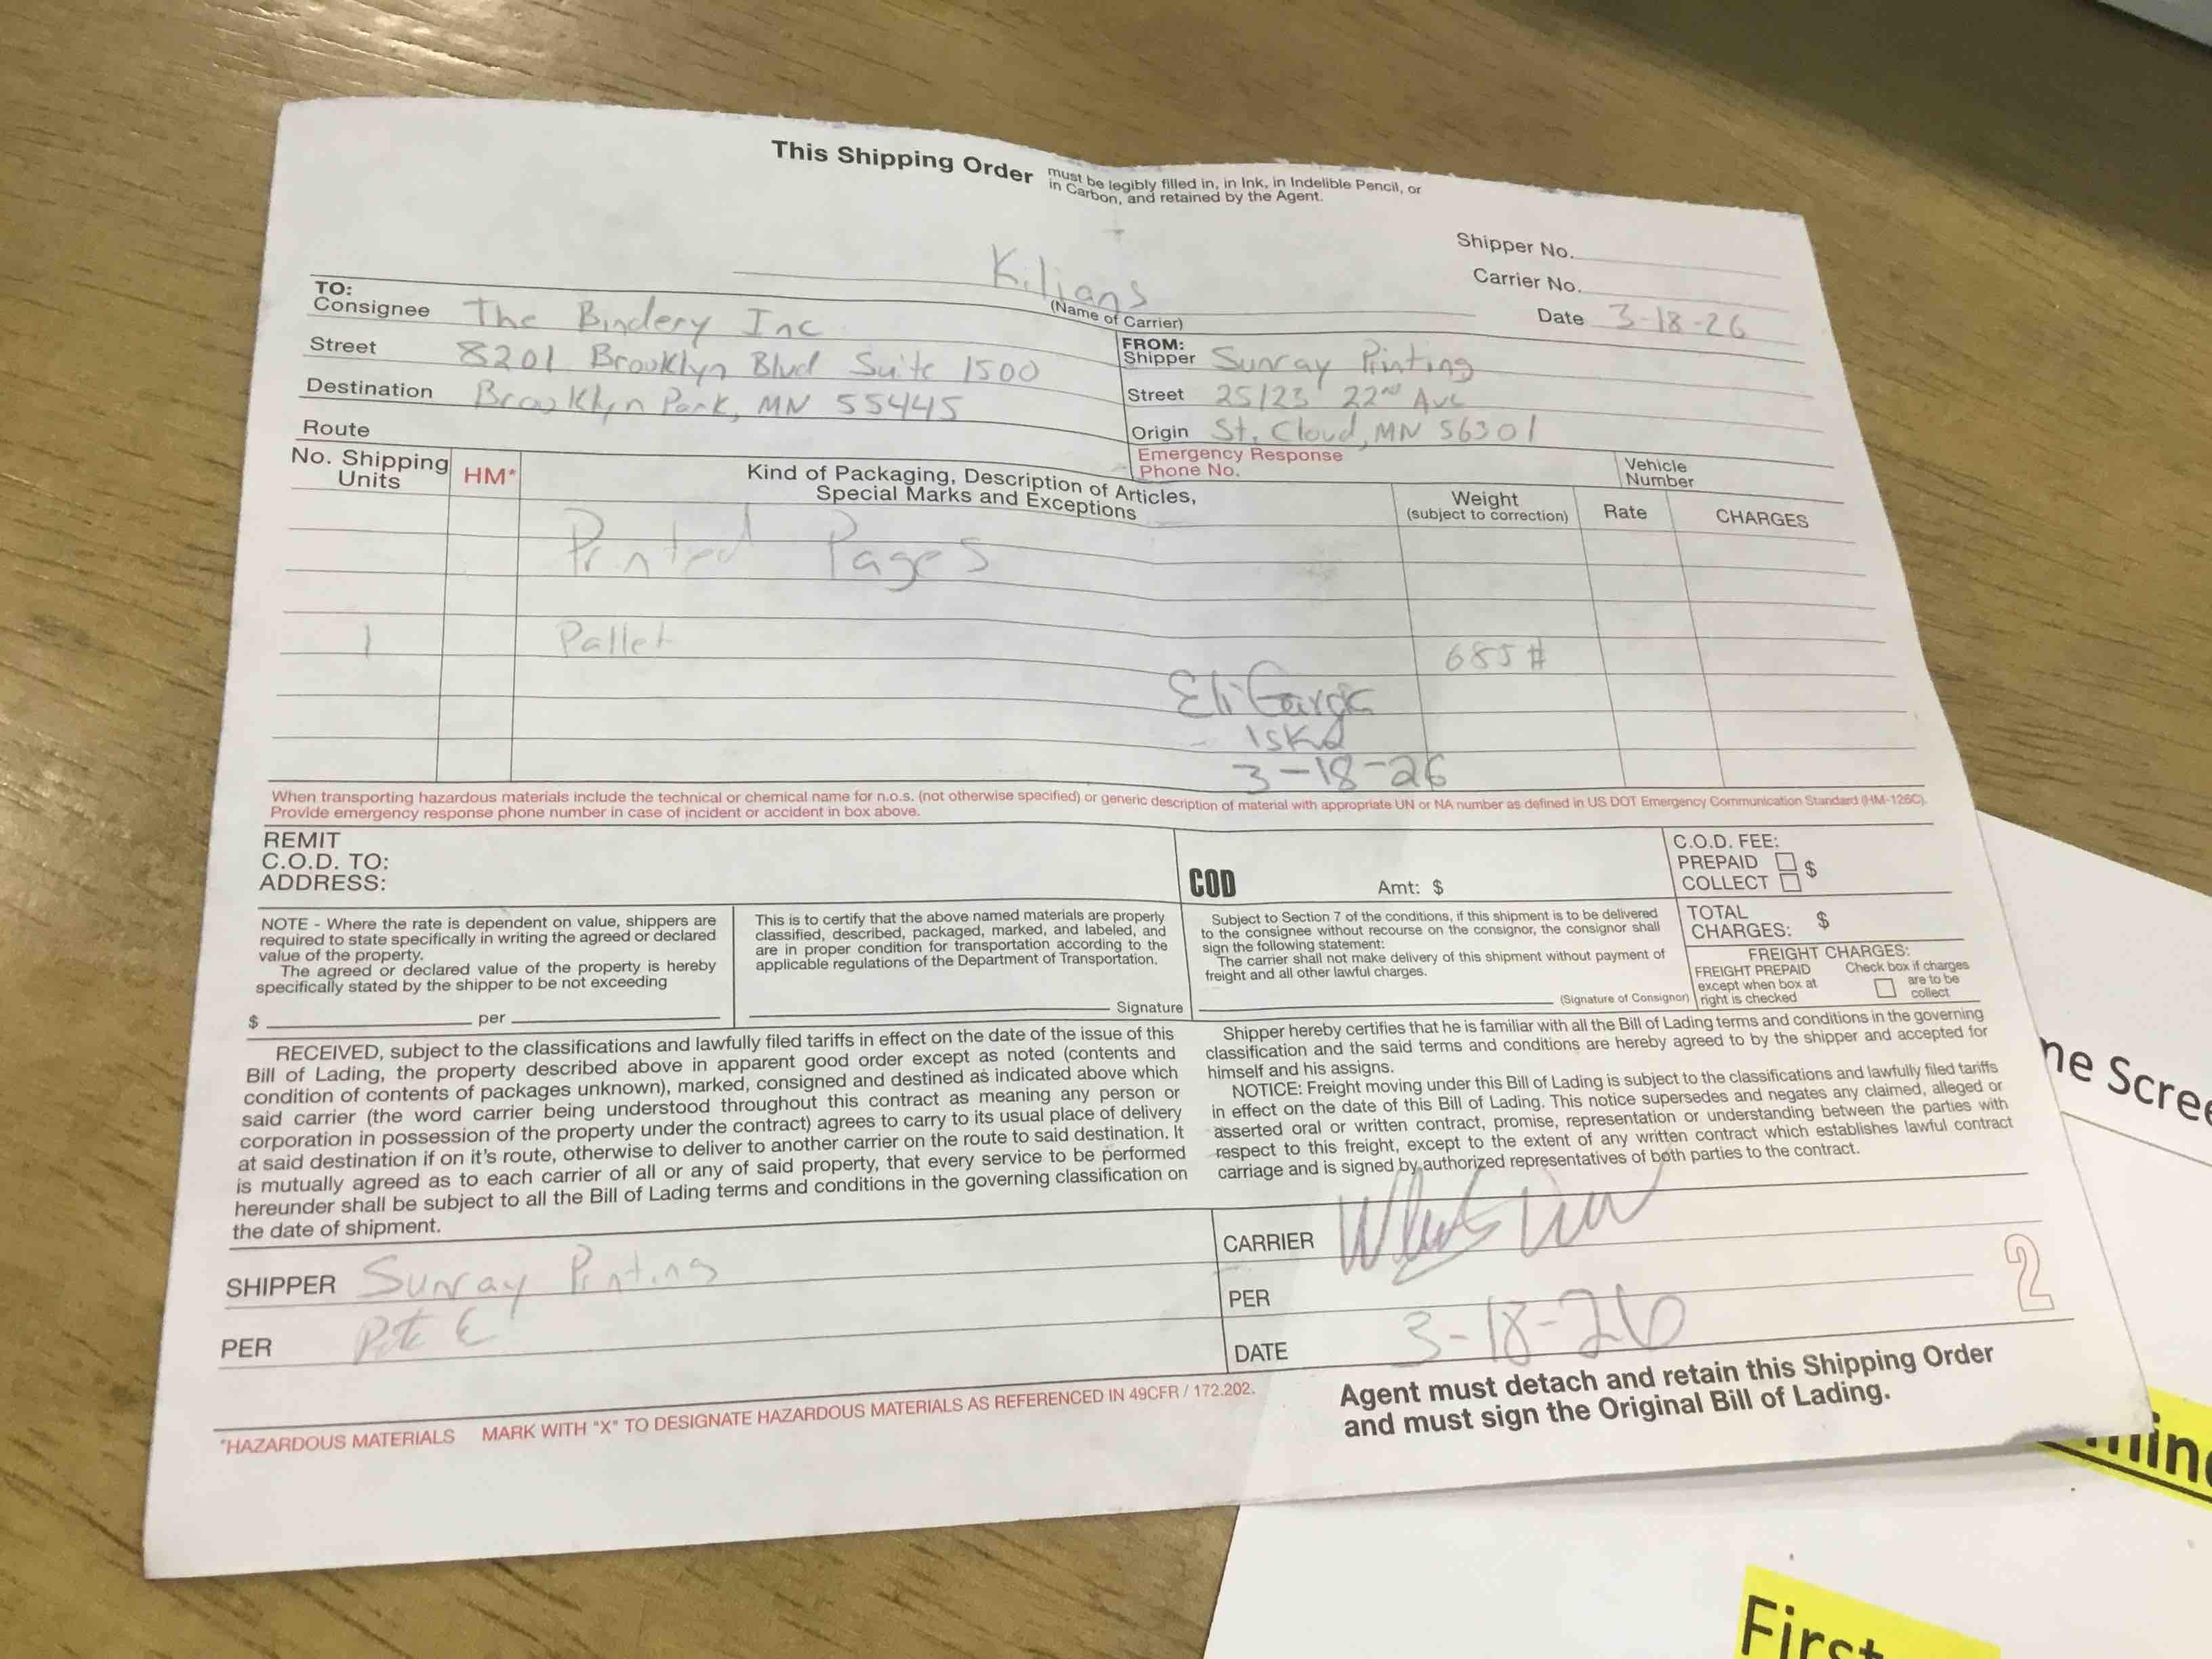 This Shipping Order must be legibly filled in, in Ink, in Indelible Pencil, or
in Carbon, and retained by the Agent.
Shipper No.
Carrier No.
Date 3-18-26
Kilians
(Name of Carrier)
TO:
Consignee The Bindery Inc
Street 8201 Brooklyn Blvd Suite 1500
Destination Brooklyn Park, MN 55445
Route
FROM:
Shipper Sunray Printing
Street 25123 22nd Ave
Origin St. Cloud, MN 56301
Emergency Response
Phone No.
Vehicle
Number
No. Shipping
Units
HM*
Kind of Packaging, Description of Articles,
Special Marks and Exceptions
Weight
(subject to correction)
Rate
CHARGES
Printed Pages
1 Pallet 685#
Eli
1SKd
3-18-26
When transporting hazardous materials include the technical or chemical name for n.o.s. (not otherwise specified) or generic description of material with appropriate UN or NA number as defined in US DOT Emergency Communication Standard (HM-126C).
Provide emergency response phone number in case of incident or accident in box above.
REMIT
C.O.D. TO:
ADDRESS:
COD Amt: $
C.O.D. FEE:
PREPAID $
COLLECT
NOTE - Where the rate is dependent on value, shippers are
required to state specifically in writing the agreed or declared
value of the property.
The agreed or declared value of the property is hereby
specifically stated by the shipper to be not exceeding
$ per
This is to certify that the above named materials are properly
classified, described, packaged, marked, and labeled, and
are in proper condition for transportation according to the
applicable regulations of the Department of Transportation.
Signature
Subject to Section 7 of the conditions, if this shipment is to be delivered
to the consignee without recourse on the consignor, the consignor shall
sign the following statement:
The carrier shall not make delivery of this shipment without payment of
freight and all other lawful charges.
(Signature of Consignor)
TOTAL
CHARGES: $
FREIGHT CHARGES:
FREIGHT PREPAID
except when box at
right is checked
Check box if charges
are to be
collect
RECEIVED, subject to the classifications and lawfully filed tariffs in effect on the date of the issue of this
Bill of Lading, the property described above in apparent good order except as noted (contents and
condition of contents of packages unknown), marked, consigned and destined as indicated above which
said carrier (the word carrier being understood throughout this contract as meaning any person or
corporation in possession of the property under the contract) agrees to carry to its usual place of delivery
at said destination if on it's route, otherwise to deliver to another carrier on the route to said destination. It
is mutually agreed as to each carrier of all or any of said property, that every service to be performed
hereunder shall be subject to all the Bill of Lading terms and conditions in the governing classification on
the date of shipment.
Shipper hereby certifies that he is familiar with all the Bill of Lading terms and conditions in the governing
classification and the said terms and conditions are hereby agreed to by the shipper and accepted for
himself and his assigns.
NOTICE: Freight moving under this Bill of Lading is subject to the classifications and lawfully filed tariffs
in effect on the date of this Bill of Lading. This notice supersedes and negates any claimed, alleged or
asserted oral or written contract, promise, representation or understanding between the parties with
respect to this freight, except to the extent of any written contract which establishes lawful contract
carriage and is signed by authorized representatives of both parties to the contract.
SHIPPER Sunray Printing
PER Pete E
CARRIER
PER
DATE 3-18-26
2
*HAZARDOUS MATERIALS MARK WITH "X" TO DESIGNATE HAZARDOUS MATERIALS AS REFERENCED IN 49CFR / 172.202.
Agent must detach and retain this Shipping Order
and must sign the Original Bill of Lading.
First